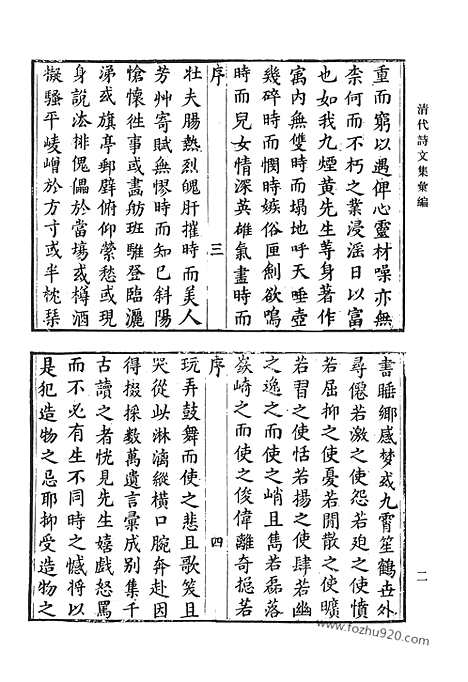 清代詩文集彙編
重而窮以遇俾心靈材噪亦無
柰何而不朽之業浸淫日以富
也如我九煙黃先生等身著作
寓內無雙時而塌地呼天唾壺
幾碎時而憫時嫉俗匣劍欲鳴
時而兒女情深英雄氣盡時而
序 三
壯夫腸熱烈魄肝摧時而美人
芳艸寄賦無憀時而知己斜陽
愴懷徃事或畵舫班騅登臨灑
涕或旗亭郵壁俯仰縈愁或現
身說法排傀儡於當場或樽酒
擬騷平崚嶒於方寸或半枕琹
二
書睡鄉感梦或九霄笙鶴卋外
尋僊若激之使怨若廹之使憤
若屈抑之使憂若閒散之使曠
若習之使恬若揚之使肆若幽
之逸之而使之峭且雋若磊落
嶔崎之而使之俊偉離奇挹若
序 四
玩弄鼓舞而使之悲且歌笑且
哭從此淋漓縱橫口腕奔赴因
得掇採數萬遺言彙成別集千
古讀之者恍見先生嬉戲怒罵
而不必有生不同時之憾將以
是犯造物之忌耶抑受造物之
www.fozhu920.com